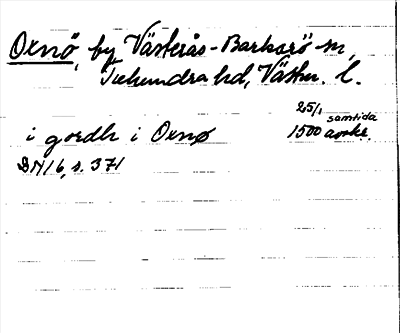 Oxnö, by, Västerås-Barkarö sn,
Tuhundra hd, Västm. l.
25/1 samtida
i gordh i Oxnø 1500 avskr.
DN 16, s. 371